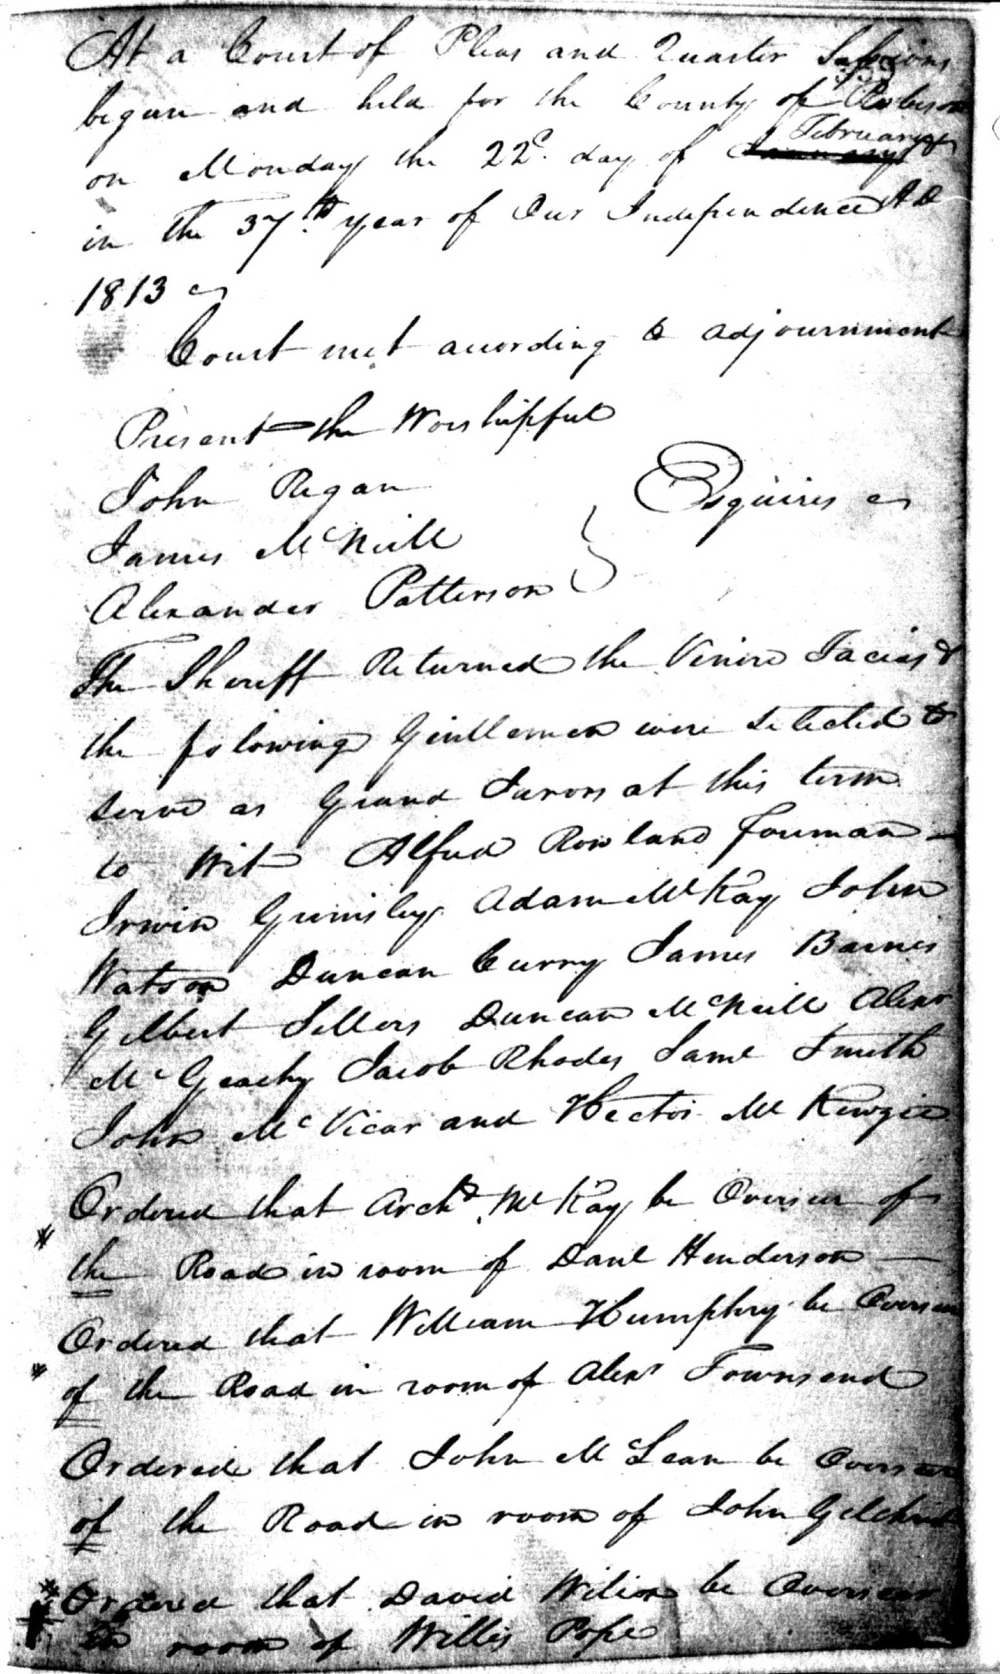 At a Court of Pleas and Quarter Sessions
333
begun and held for the County of Robeson
on Monday the 22d. day of January February
in the 37th year of Our Independence A D
1813
Court met acording to adjournment
Present the Worshipful
John Regan
Esquires
James McNeill
Alexander Patterson
The Sheriff Returned the Venire Facias &
the folowing Gentlemen were Selected to
serve as Grand Jurors at this term
to Wit Alfred Rowland foreman
Irwin Grimsley Adam McKay John
Watson Duncan Curry James Barnes
Gilbert Sellers Duncan McNeill Alexr
McGeachy Jacob Rhodes Saml Smith
John McVicar and Hector McKenzie
Ordered that Archd McKay be Overseer of
* the Road in room of Danl Henderson
Ordered that William Humphry be Overseer
* of the Road in room of Alexr Townsend
Ordered that John McLean be Overseer
of the Road in room of John Gilchrist
* Ordered that David Wilson be Overseer
in room of Willis Pope